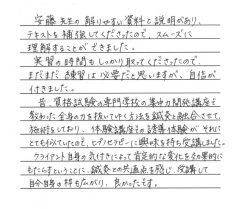 安藤先生の解りやすい資料と説明があり、
テキストを補強してくださったので、スムーズに
理解することができました。
実習の時間もしっかり取ってくださったので、
まだまだ練習は必要だと思いますが、自信が
付きました。
昔、資格試験の専門学校の集中力開発講座で
教わった全身の力を抜いてゆく方法を鍼灸と融合させて、
施術をしており、体験講座の誘導体験が それに
とても似ていたので、ヒプノセラピーに興味を持ち受講しました。
クライアント自身の気付きによって肯定的な変化を効果的に
もたらすということに、鍼灸との共通点を感じ、受講して
自分自身の枠も広がり、良かったです。